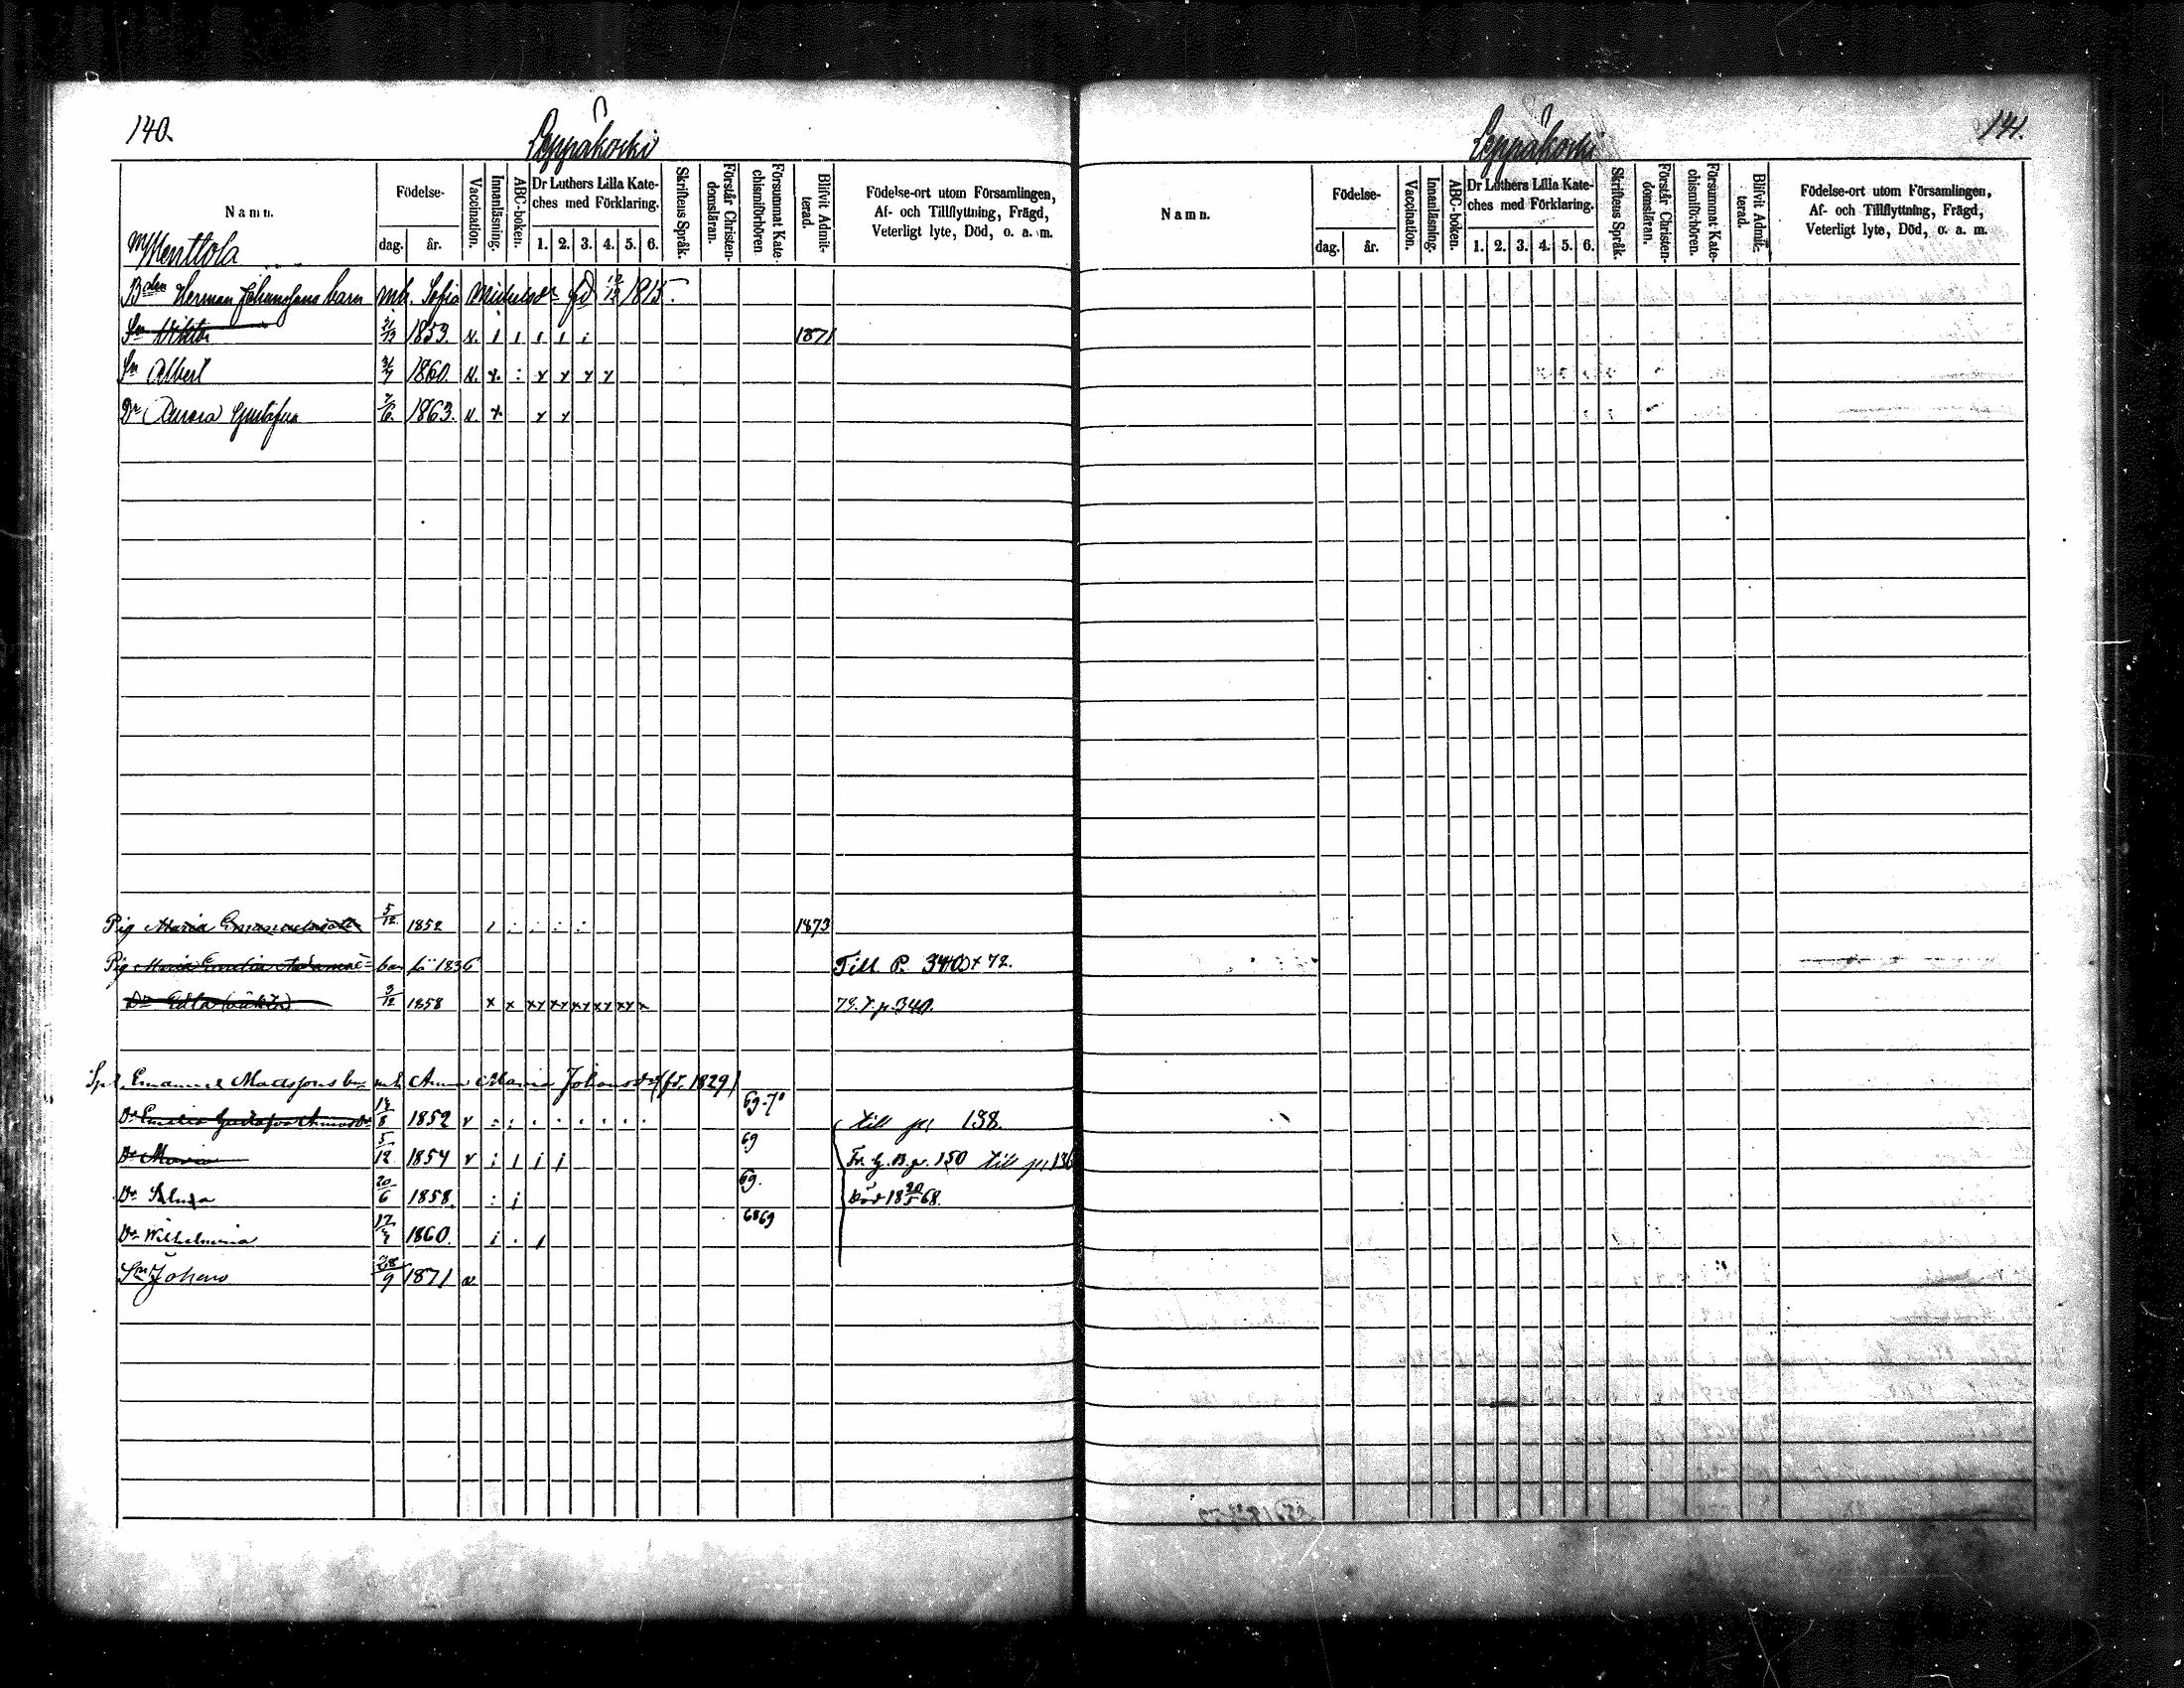 140.
Leppäkoski
Namn.
Födelse-
dag.
år.
Vaccination.
Innanläsning.
ABC-boken.
Dr Luthers Lilla Kate-
ches med Förklaring.
1. 2. 3. 4. 5. 6.
Skriftens Språk.
Förstår Christen-
domsläran.
Försummat Kate-
chismiförhören
Blifvit Admit-
terad.
Födelse-ort utom Församlingen,
Af- och Tillflyttning, Frägd,
Veterligt lyte, Död, o. a. m.
Menttola
Bdn Herman Johanssons barn mh. Sofia Michelsdr fd 12/12 1815.
Sn Viktor 21/12 1853. v. 1871
Sn Albert 1860. v. x. : x x x x
Dr Aurora Gustafva 7/6. 1863. v. x x x
Pig Maria Emanuelsdotter 5/12. 1852 1873
Pig Maria Emelia barn 1836 Till P. 340 72.
Dr Edla 3/12 1858 x x xx xx xx xx xx x 79. T. p. 340.
Emanuel Matssons mh Anna Maria Johansdr (fd. 1829)
Dr Emelia Gustafva 14/8 1852 v 69-70 till 138.
Dr Maria 5/12 1854 v 69 Fr. G. B. p. 150 till 136
Dr Selma 20/6 1858. 69. Död 18 20/5 68.
Dr Wilhelmina 1860. 6869
Sn Johans 28/9 1871 v
141.
Leppäkoski
Namn.
Födelse-
dag.
år.
Vaccination.
Innanläsning.
ABC-boken.
Dr Luthers Lilla Kate-
ches med Förklaring.
1. 2. 3. 4. 5. 6.
Skriftens Språk.
Förstår Christen-
domsläran.
Försummat Kate-
chismiförhören.
Blifvit Admit-
terad.
Födelse-ort utom Församlingen,
Af- och Tillflyttning, Frägd,
Veterligt lyte, Död, o. a. m.